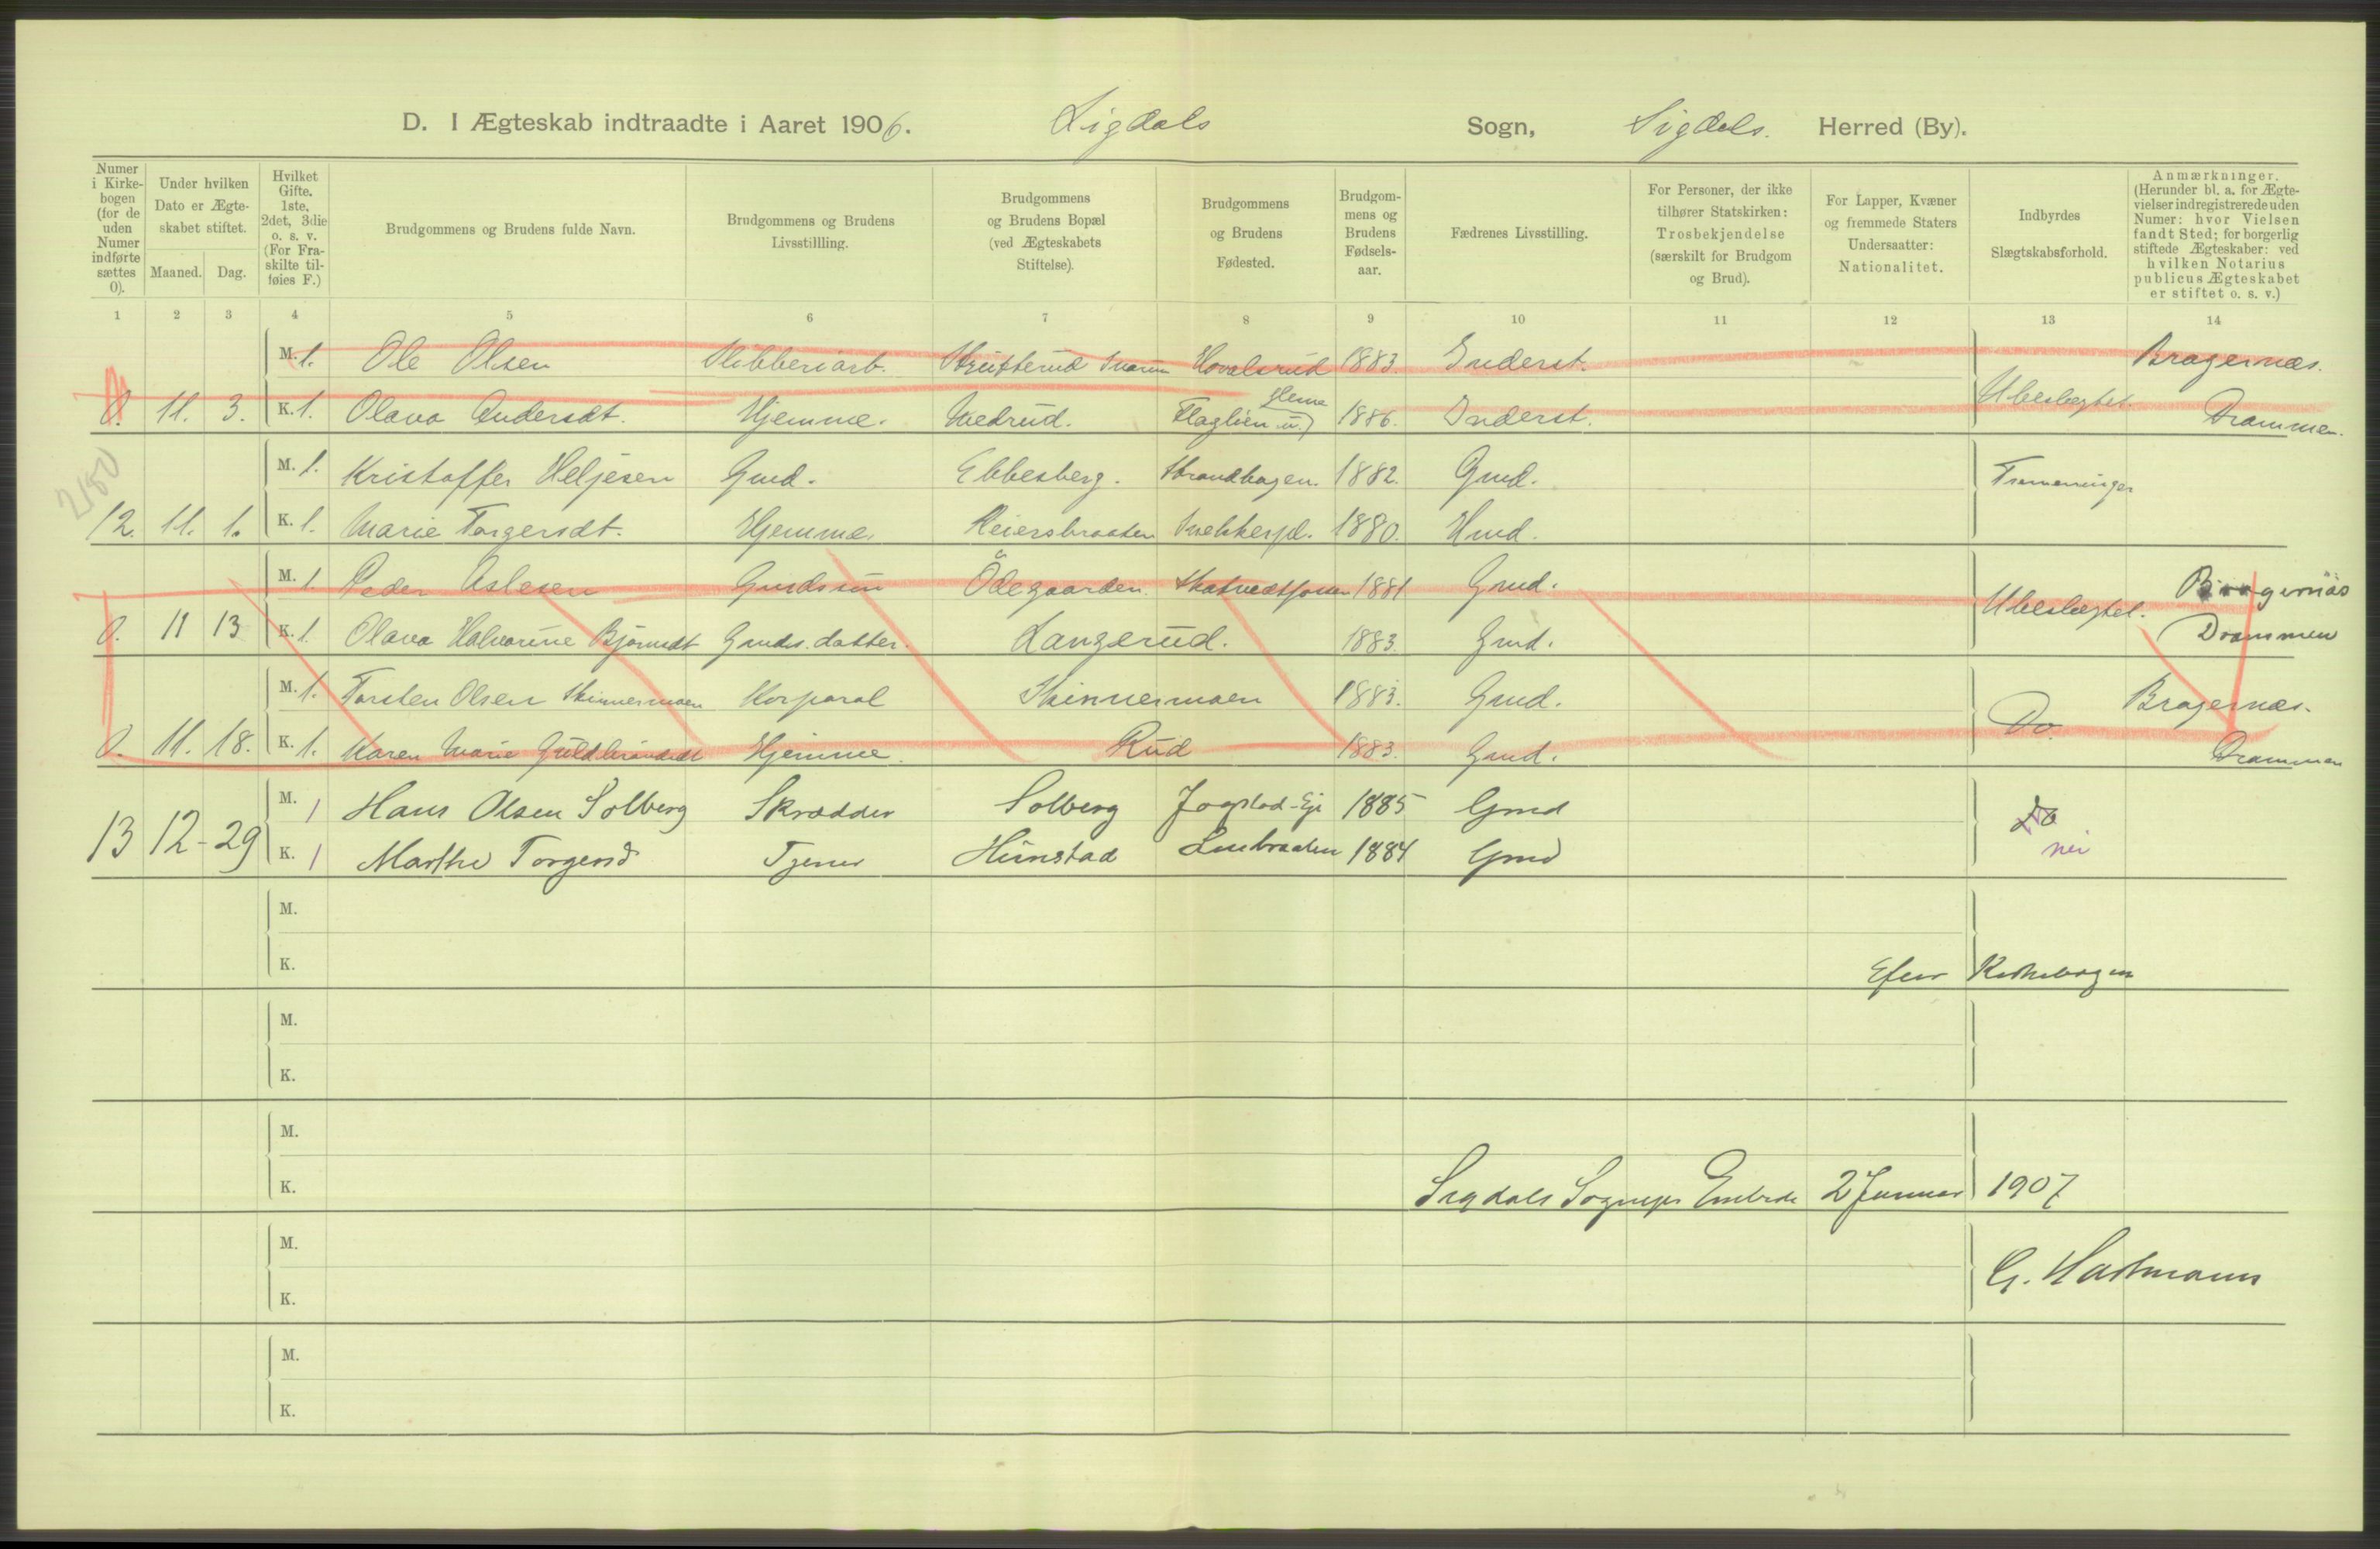 D. I Ægteskab indtraadte i Aaret 1906. Sigdals Sogn, Sigdals. Herred (By).
Numer i Kirkebogen (for de uden Numer indførte sættes 0).
Under hvilken Dato er Ægteskabet stiftet.
Maaned. Dag.
Hvilket Gifte. 1ste, 2det, 3die o. s. v. (For Fraskilte tilføies F.)
Brudgommens og Brudens fulde Navn.
Brudgommens og Brudens Livsstillling.
Brudgommens og Brudens Bopæl (ved Ægteskabets Stiftelse).
Brudgommens og Brudens Fødested.
Brudgommens og Brudens Fødselsaar.
Fædrenes Livsstilling.
For Personer, der ikke tilhører Statskirken: Trosbekjendelse (særskilt for Brudgom og Brud).
For Lapper, Kvæner og fremmede Staters Undersaatter: Nationalitet.
Indbyrdes Slægtskabsforhold.
Anmærkninger. (Herunder bl. a. for Ægtevielser indregistrerede uden Numer: hvor Vielsen fandt Sted; for borgerlig stiftede Ægteskaber: ved hvilken Notarius publicus Ægteskabet er stiftet o. s. v.)
1 2 3 4 5 6 7 8 9 10 11 12 13 14
M. 1. Ole Olsen Slibberiarb. 1883. Inderst. Bragernæs.
0. 11. 3. K. 1. Olava Andersdt. Hjemme. Medrud. 1886. Inderst. Ubeslægtet. Drammen.
2180
M. 1. Kristoffer Heljesen Gmd. Ebbesberg. Strandhagen. 1882. Gmd. Tremeninger
12. 11. 1. K. 1. Marie Torgersdt. Hjemme. Reiersbraaten 1880. Hmd.
M. 1. Peder Aslesen Gmdssøn Ödegaarden. 1881 Gmd. Bragernäs
0. 11 13 K. 1. Olava Halvorine Björnsdt Gmds. datter. Langerud. 1883. Gmd. Ubeslægtet. Drammen
M. 1. Torsten Olsen Skinnesmoen Korporal Skinnesmoen 1883. Gmd. Bragernæs.
0. 11. 18. K. 1. Karen Marie Guldbrandsdt Hjemme. Rud 1883. Gmd. Do. Drammen
M. 1 Hans Olsen Solberg Skrædder Solberg Jogstad-Eje 1885 Gmd Do
13 12 - 29 K. 1 Marthe Torgersd Tjener Hunstad Lurbraaten 1884 Gmd nei
M.
K. Efter Kirkebogen
M.
K.
M.
K. Sigdals Sognepr Embede 2 Januar 1907
M.
G. Hartmann
K.
M.
K.